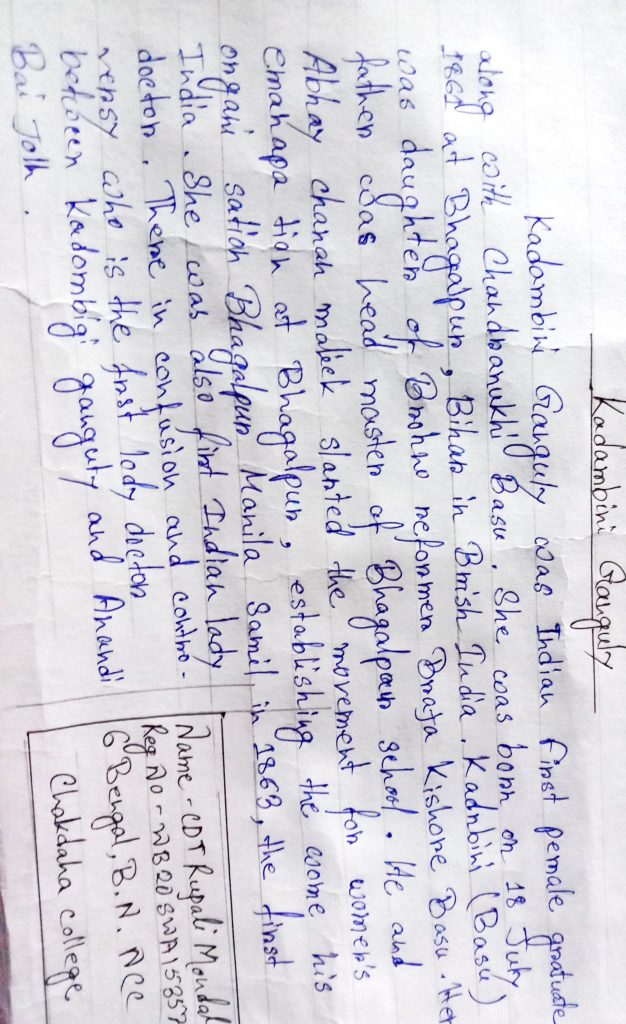 Kadambini Ganguly
Kadambini Ganguly was Indian first pemale gratude
along with Chandranukhi Basu. She was born on 18 July
1861 at Bhagalpur, Bihar in Brish India. Kadnbini (Basu)
was daughter of Brohno reformer Braja Kishore Basu. Her
father was head master of Bhagalpur school. He and
Abhay charan malick started the movement for women's
emahapa tion at Bhagalpur, establishing the wome his
organi sation Bhagalpur Manila Samil, in 1863, the first
India. She was also firt Indian lady
doctor. There in confusion and contro-
versy who is the first lady doctor
between Kadombigi ganguty and Anandi
Bai Joth.
Name - CDT Rupali Mondal
Reg No - WB20SWA15357
6 Bengal, B.N. NCC
Chakdaha college